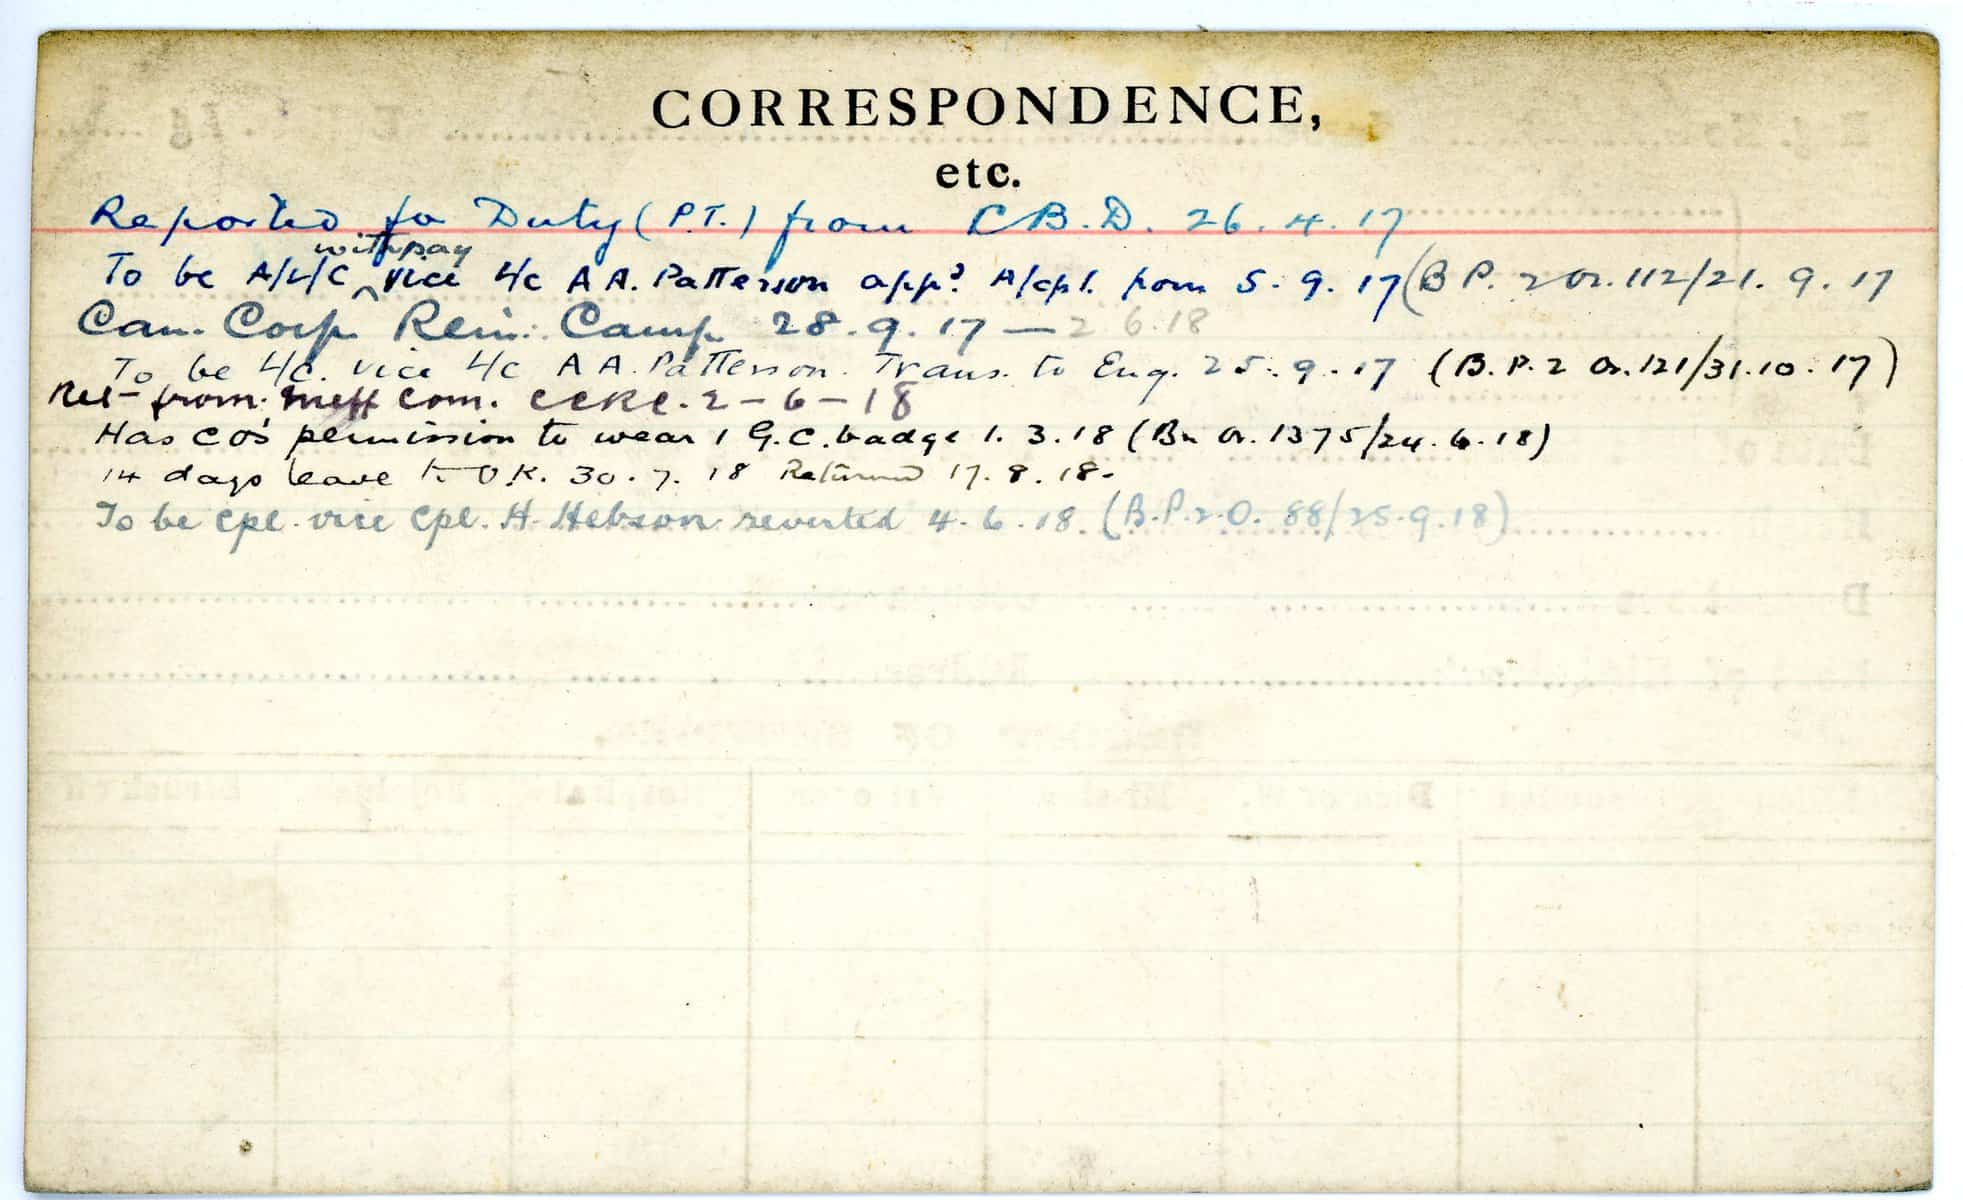 CORRESPONDENCE,
etc.
Reported for Duty (P.T.) from C B.D. 26.4.17
with pay
To be A/L/C vice L/c A A. Patterson app? A/cpl. from 5.9.17 (B P. 2 Or. 112/21.9.17
Can. Corp Rein: Camp 28.9.17 — 2 6.18
To be L/c. vice L/c A A. Patterson. Trans. to Eng. 25.9.17 (B.P.2 Or. 121/31.10.17)
Ret- from Com. CCRC. 2-6-18
Has COs permission to wear 1 G.C. badge 1.3.18 (Bn Or. 1375/24.6.18)
14 days leave to U.K. 30.7.18 Returned 17.8.18.
To be Cpl. vice Cpl. H. Hebson reverted 4.6.18. (B.P.2.O. 88/25.9.18)